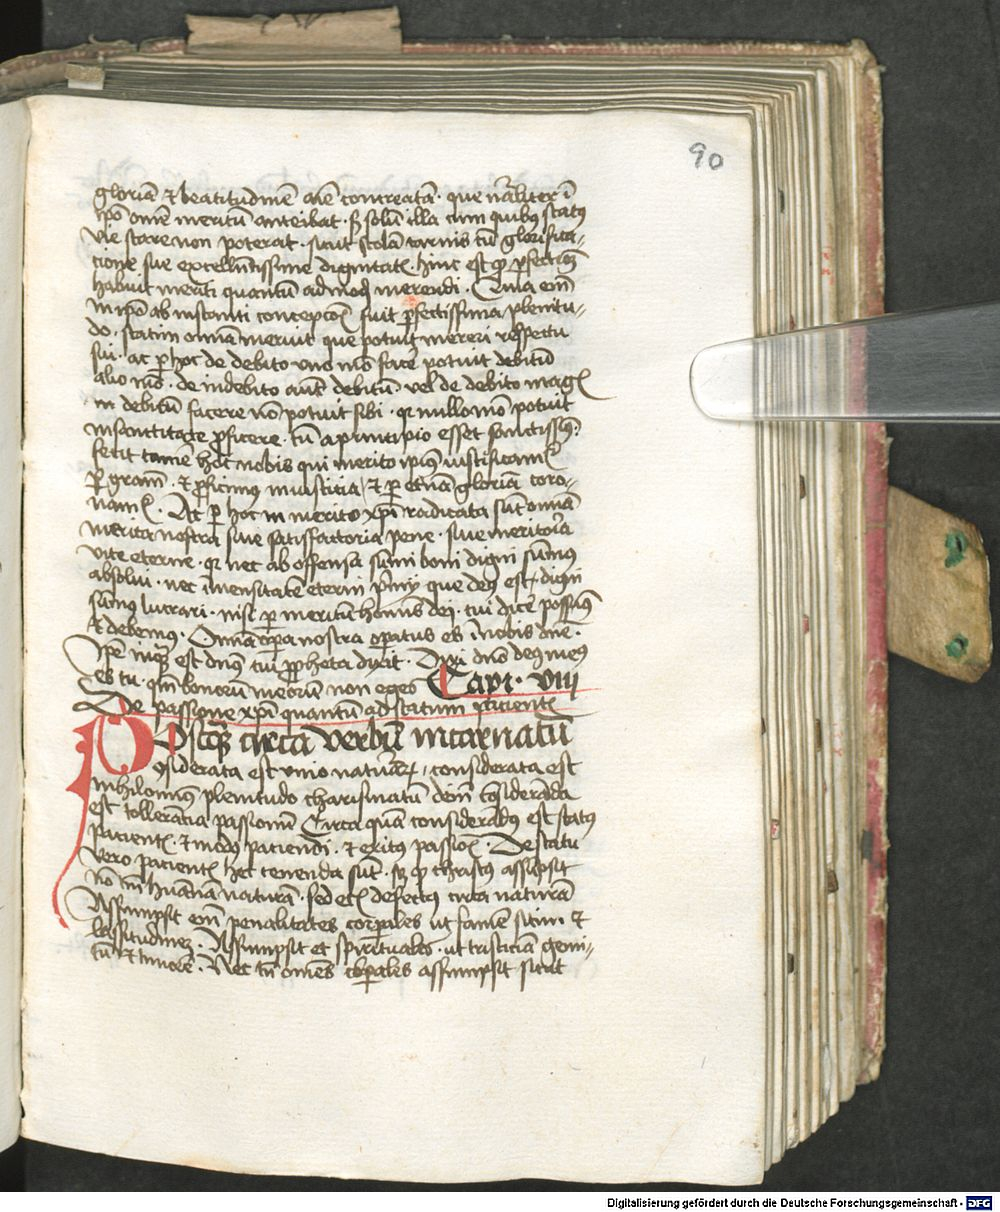 90
gloriā et beatitudinē aīe concreatā · que nāliter ī
ipō omē meritū anteibat · sȝ solū illa cum quibus status
vie stare non poterat · sicut stolā carnis tū glorifica-
cione sue excellentissime dignitatis · hinc est qp perfectioēm
habuit meriti quantū ad modū merendi · Quia enī
in ipō ab instanti concepcois fuit perfectissima plenitu-
do · statim omīa meruit que potuit mereri respectu
sui · ac per hoc de debito uno mō facere potuit debitū
alio mō · de indebito aūt debitū vel de debito magis
in debitū facere nō potuit sibi · qr nullo mō potuit
in sanctitate proficere · cū a principio esset sanctissimus ·
fecit tamē hoc nobis qui merito ipius iustificamur
per gratiam · et proficimus in iusticia et per eternā gloriā coro-
namur · Ac per hoc in merito xpī radicata sūt omīa
merita nostra siue satisfactoria pene · siue meritoria
vite eterne · qr nec ab offensa sūmi boni digni sumus
absolui · nec imensitatē eterni premij que deus est digni
sumus lucrari · nisi per meritū hominis dei · cui dicere possumus
et debemus · Omīa opera nostra operatus es ī nobis dne ·
Ipse inquam est dnūs cui propheta dixit · Dixi dnō deus meus
es tu · qm bonorū meorū non eges Capi · viii
De passione xpī quantū ad statum pacientis
Postqȝ circa verbū incarnatū
considerata est vnio naturarū · considerata est
nihilominus plenitudo charismatū deīn considerāda
est tollerācia passionū Circa quā considerādus est status
pacientis · et modus paciendi · et exitus passiois · De statu
vero pacientis hec tenenda sūt · sȝ qp christus assūpsit
nō tm humanā naturā · sed eciā defectus circa naturā
Assumpsit enī penalitates corporales ut famē sitim · et
lassitudinem · Assumpsit et spirituales · ut tristiciā gemi-
tū et timorē · Nec tn omēs corporales assumpsit sicut
Digitalisierung gefördert durch die Deutsche Forschungsgemeinschaft - DFG